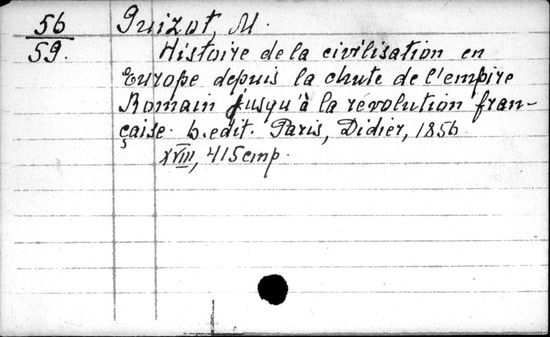 56 Guizot, M.
59. Histoire de la civilisation en
Europe depuis la chute de l'empire
Romain jusqu'à la révolution fran-
çaise. 6. edit. Paris, Didier, 1856
XVIII, 415 cmp.